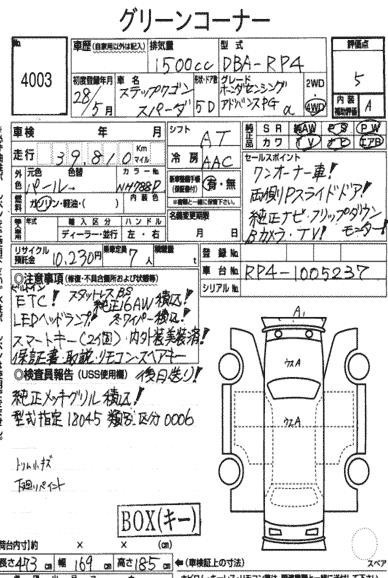 グリーンコーナー
No.
4003
車歴 (自家用以外は記入)
排気量
1500cc
型式
DBA-RP4
評価点
5
初度登録年月
28/5月
車名
ステップワゴン
スパーダ
形状・ドア数
5D
グレード
ホンダセンシング
アドバンスPG α
2WD
4WD
内装
補助評価
A
車検 年 月
走行 39,810 Km マイル
シフト
AT
冷房
AAC
純正品
SR AW PS PW
カワ TV ナビ エアB
外装色
パール→
色替
カラーNo.
NH788P
内装色
燃料
ガソリン・軽油・( )
新車整備手帳
(保証書付)
有・無
名義変更期限
月 日
セールスポイント
ワンオーナー車!
両側Pスライドドア!
純正ナビ・フリップダウン
Bカメラ・TV! モニター!
年式
輸入区分
ディーラー・並行
ハンドル
左・右
リサイクル預託金
10,230円
乗車定員
7人
積載量
t
登録No.
車台No.
RP4-1005237
シリアルNo.
◎注意事項 (修復・不具合箇所および状態等)
ETC! スタットレスBS
純正16AW積込!
LEDヘッドランプ! 冬タイヤー積込!
スマートキー(2個) 内外装美装済!
保証書 取説 リモコン スペアキー
◎検査員報告 (USS使用欄) 後日送り!
純正メッキグリル積込!
型式指定 18045 類別区分 0006
トリム小キズ
下廻りペイント
A
ウスA
ウスA
BOX(キー)
荷台内寸) × × (cm)
長さ 473 cm 幅 169 cm 高さ 185 cm
←(車検証上の寸法)
スペア